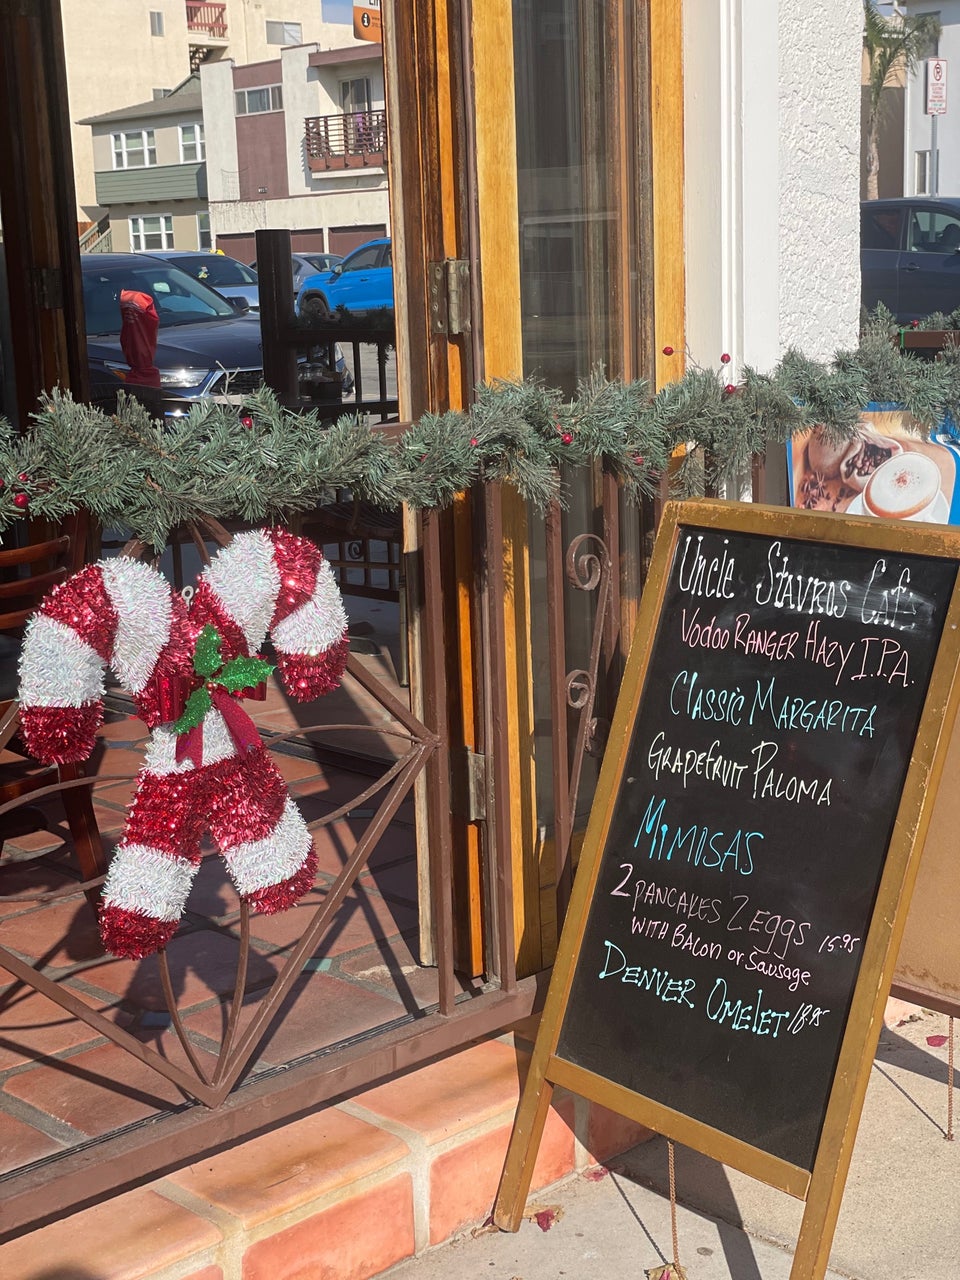 Uncle Stavros Cafe
Vodoo RANGER HAZY I.P.A.
Classic MARGARITA
GRAPEfRUIT PALOMA
MIMOSA'S
2 PANCAKES 2 Eggs 15.95
WITH BAcon or Sausage
DENVER OMElET 18.95